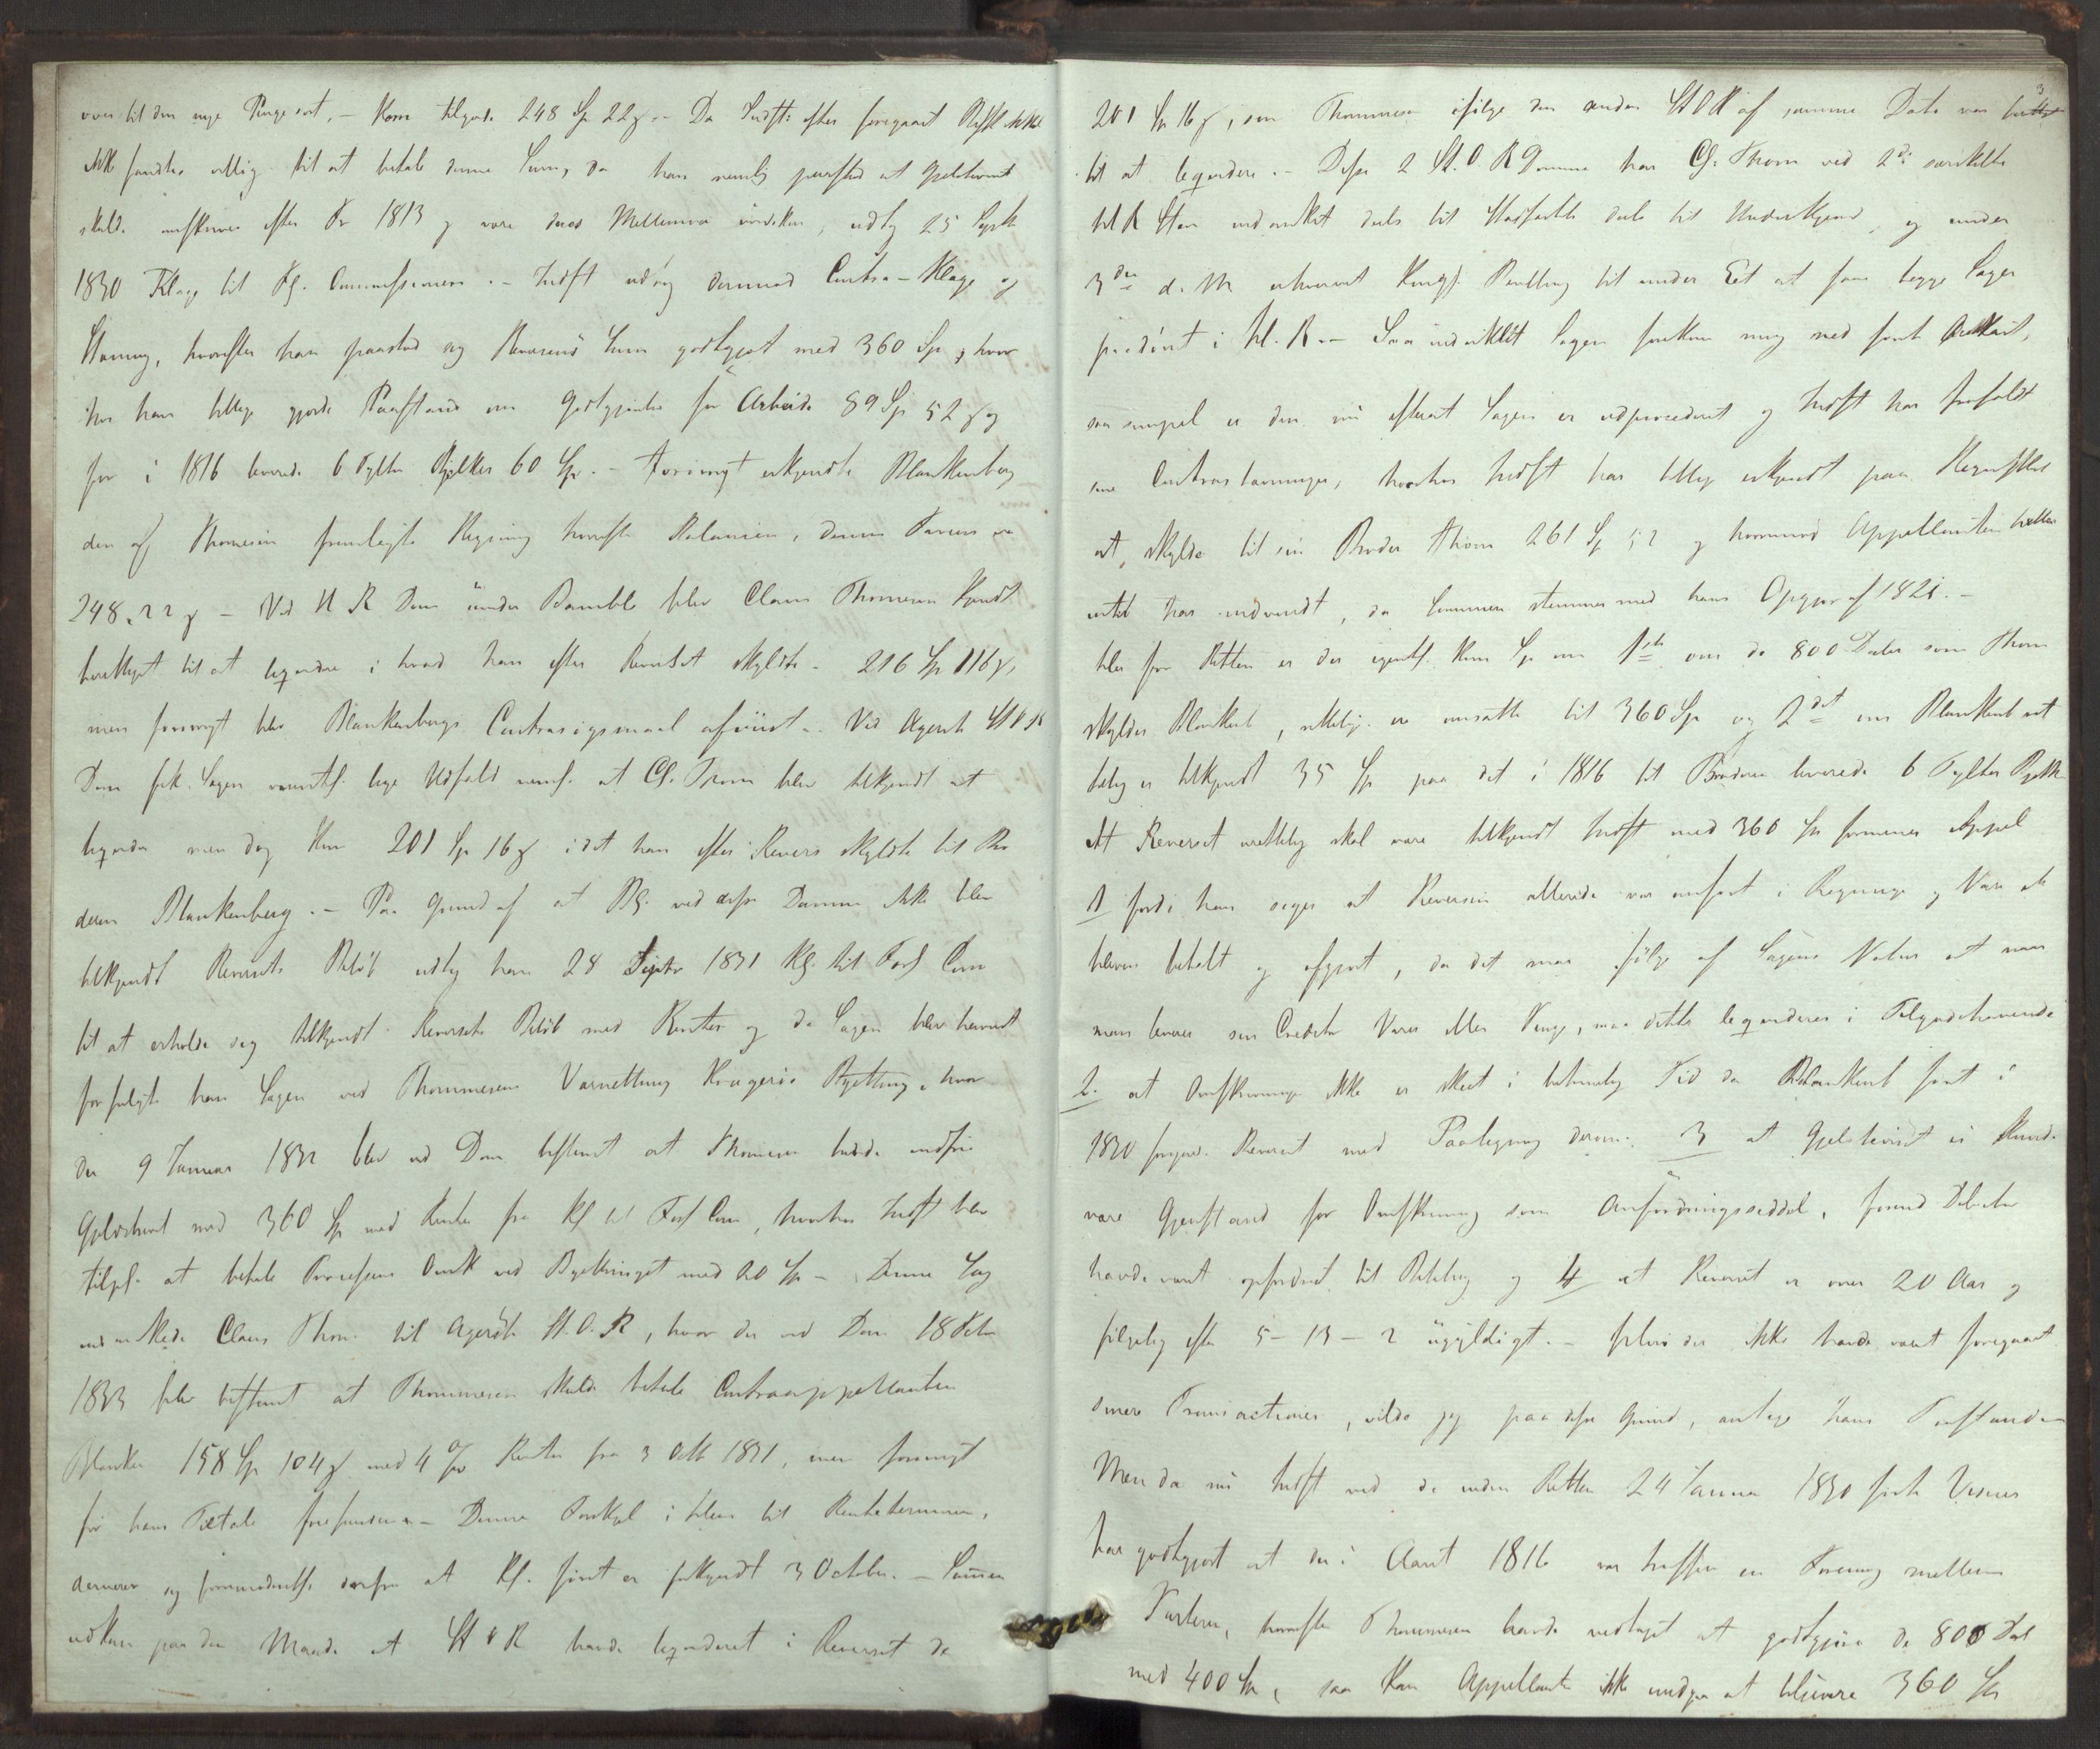 over til den nye Pengesort, – kom tilgode 248 Sp 22 ß. – Da Indst: efter foregaaet
ikke fandtes villig til at betale denne Sum, da han nemlig paastod at Gjeldsbeviset
skulde omskrives efter Fr 1813 og være deres Mellemværende, udtog 25 Septb
1830 Klage til Fs. Commissionen. – Indst udtog dermed Contra-Klage og
Stævning, hvorefter han paastod sig Reversens Sum godtgjort med 360 Sp, hvor
hos han tillige gjorde Paastand om Godtgjørelse for Arbeide 89 Sp 52 ß og
for i 1816 leverede 6 Tylter Bjelker 60 Sp. – Forøvrigt erkjendte Blankenberg
den af Thomesen fremlagte Regning hvorefter Balancen, denne Faveur er
248. 22 ß – Ved U R Dom under Bamble blev Claus Thomesen kjendt
berettiget til at liqvidere i hvad han efter Beviset skyldte – 216 Sp 116 ß,
men forøvrigt blev Blankenbergs Contrasøgsmaal afviist. – Ved Agers St O R
Dom fik Sagen væsentl. lige Udfald nemlig at Cl. Thom blev tilkjendt at
liqvidere men dog kun 201 Sp 16 ß idet han efter Revers skyldte til Bro
deren Blankenberg. – Paa Grund af at Bl. ved disse Domme ikke blev
tilkjendt Reversets Beløb udtog han 28 Septbr 1831 Kl. til Forl Com
til at erholde sig tilkjendt Reversets Beløb med Renter og da Sagen blev henviist
forfulgte han Sagen ved Thommesens Værnething Kragerø Byething, hvor
den 9 Januar 1832 blev ved Dom bestemt at Thomesen burde indfrie
Gjeldsbeviset med 360 Sp med Renter fra Kl til Forl Com, hvorhos Indst blev
tilpl. at betale Processens Omk ved Byethinget med 20 Sp – Denne Sag
indankede Claus Thom. til Agers St. O. R, hvor der ved Dom 18 Febr
1833 blev bestemt at Thommesen skulde betale Contraappellanten
Blanken 158 Sp 104 ß med 4 % Renter fra 3 Octb 1831, men forøvrigt
for hans Tiltale frifindes. – Denne Forskjel i Tiden til Rentetermin,
deriverer sig formodentl. derfra at Kl. først er forkyndt 3 October. – Summen
udkom paa den Maade at St O R havde liqvideret i Reverset de
3
201 Sp 16 ß, som Thommesen ifølge den anden St O R af samme Dato var
til at liqvidere. – Disse 2 St. O. R Domme har Cl. Thom ved 2de særskilte
til H Stev indanket deels til Stadfæstelse deels til Underkjend, og under
3die d. M erhvervet Kongl. Bevilling til under Eet at faae begge Sager
paadømt i H. R. – Saa indviklet Sagen forekom mig ved første Øiekast,
saa simpel er den nu efterat Sagen er udprocederet og Indst har frafaldt
sine Contrastævninger, hvorhos Indst har tillige erkjendt paa
at skylde til sin Broder Thom 261 Sp 52 og hvorimod Appellanten heller
intet har indvendt, da Summen stemmer med hans Opgjør af 1821. –
blev for Retten er der egentl. kun Sp om 1ste om de 800 Daler som Thom
skylder Blankenb, rettelig er ansatte til 360 Sp og 2det om Blankenb ret
telig er tilkjendt 35 Sp paa det i 1816 til Broderen leverede 6 Tylter Bjelk
At Reverset urettelig skal være tilkjendt Indst med 360 Sp formener Appel
1 fordi han siger at Reversen allerede var anført i Regninge og Vare
bleven betalt og afgjort, da det maa følge af Sagens Natur at naar
man leverer sin Creditor Varer eller Penge, maa dette liqvideres i Tilgodehavende
2. at Omskrivningen ikke er skeet i betimelig Tid da Blankenb først i
1830 Reverset med Paategning derom. 3 at Gjeldsbeviset ei kunde
være Gjenstand for Omskrivning som Anfordringsseddel, førend Debitor
havde været opfordret til Betaling og 4 at Reverset er over 20 Aar og
følgelig efter 5 – 13 – 2 ugyldigt. – hvis der ikke havde været foregaaet
disse Transactioner, vilde jeg paa disse Grunde, antage hans Paastande
Men da nu Indst ved de inden Retten 24 Januar 1830 førte Vidner
har godtgjort at der i Aaret 1816 var truffen en Forening mellem
Parterne, hvorefter Thommesen havde vedtaget at godtgjøre de 800 Dal
med 400 Sp, saa kan Appellanten ikke undgaa at tilsvare 360 Sp